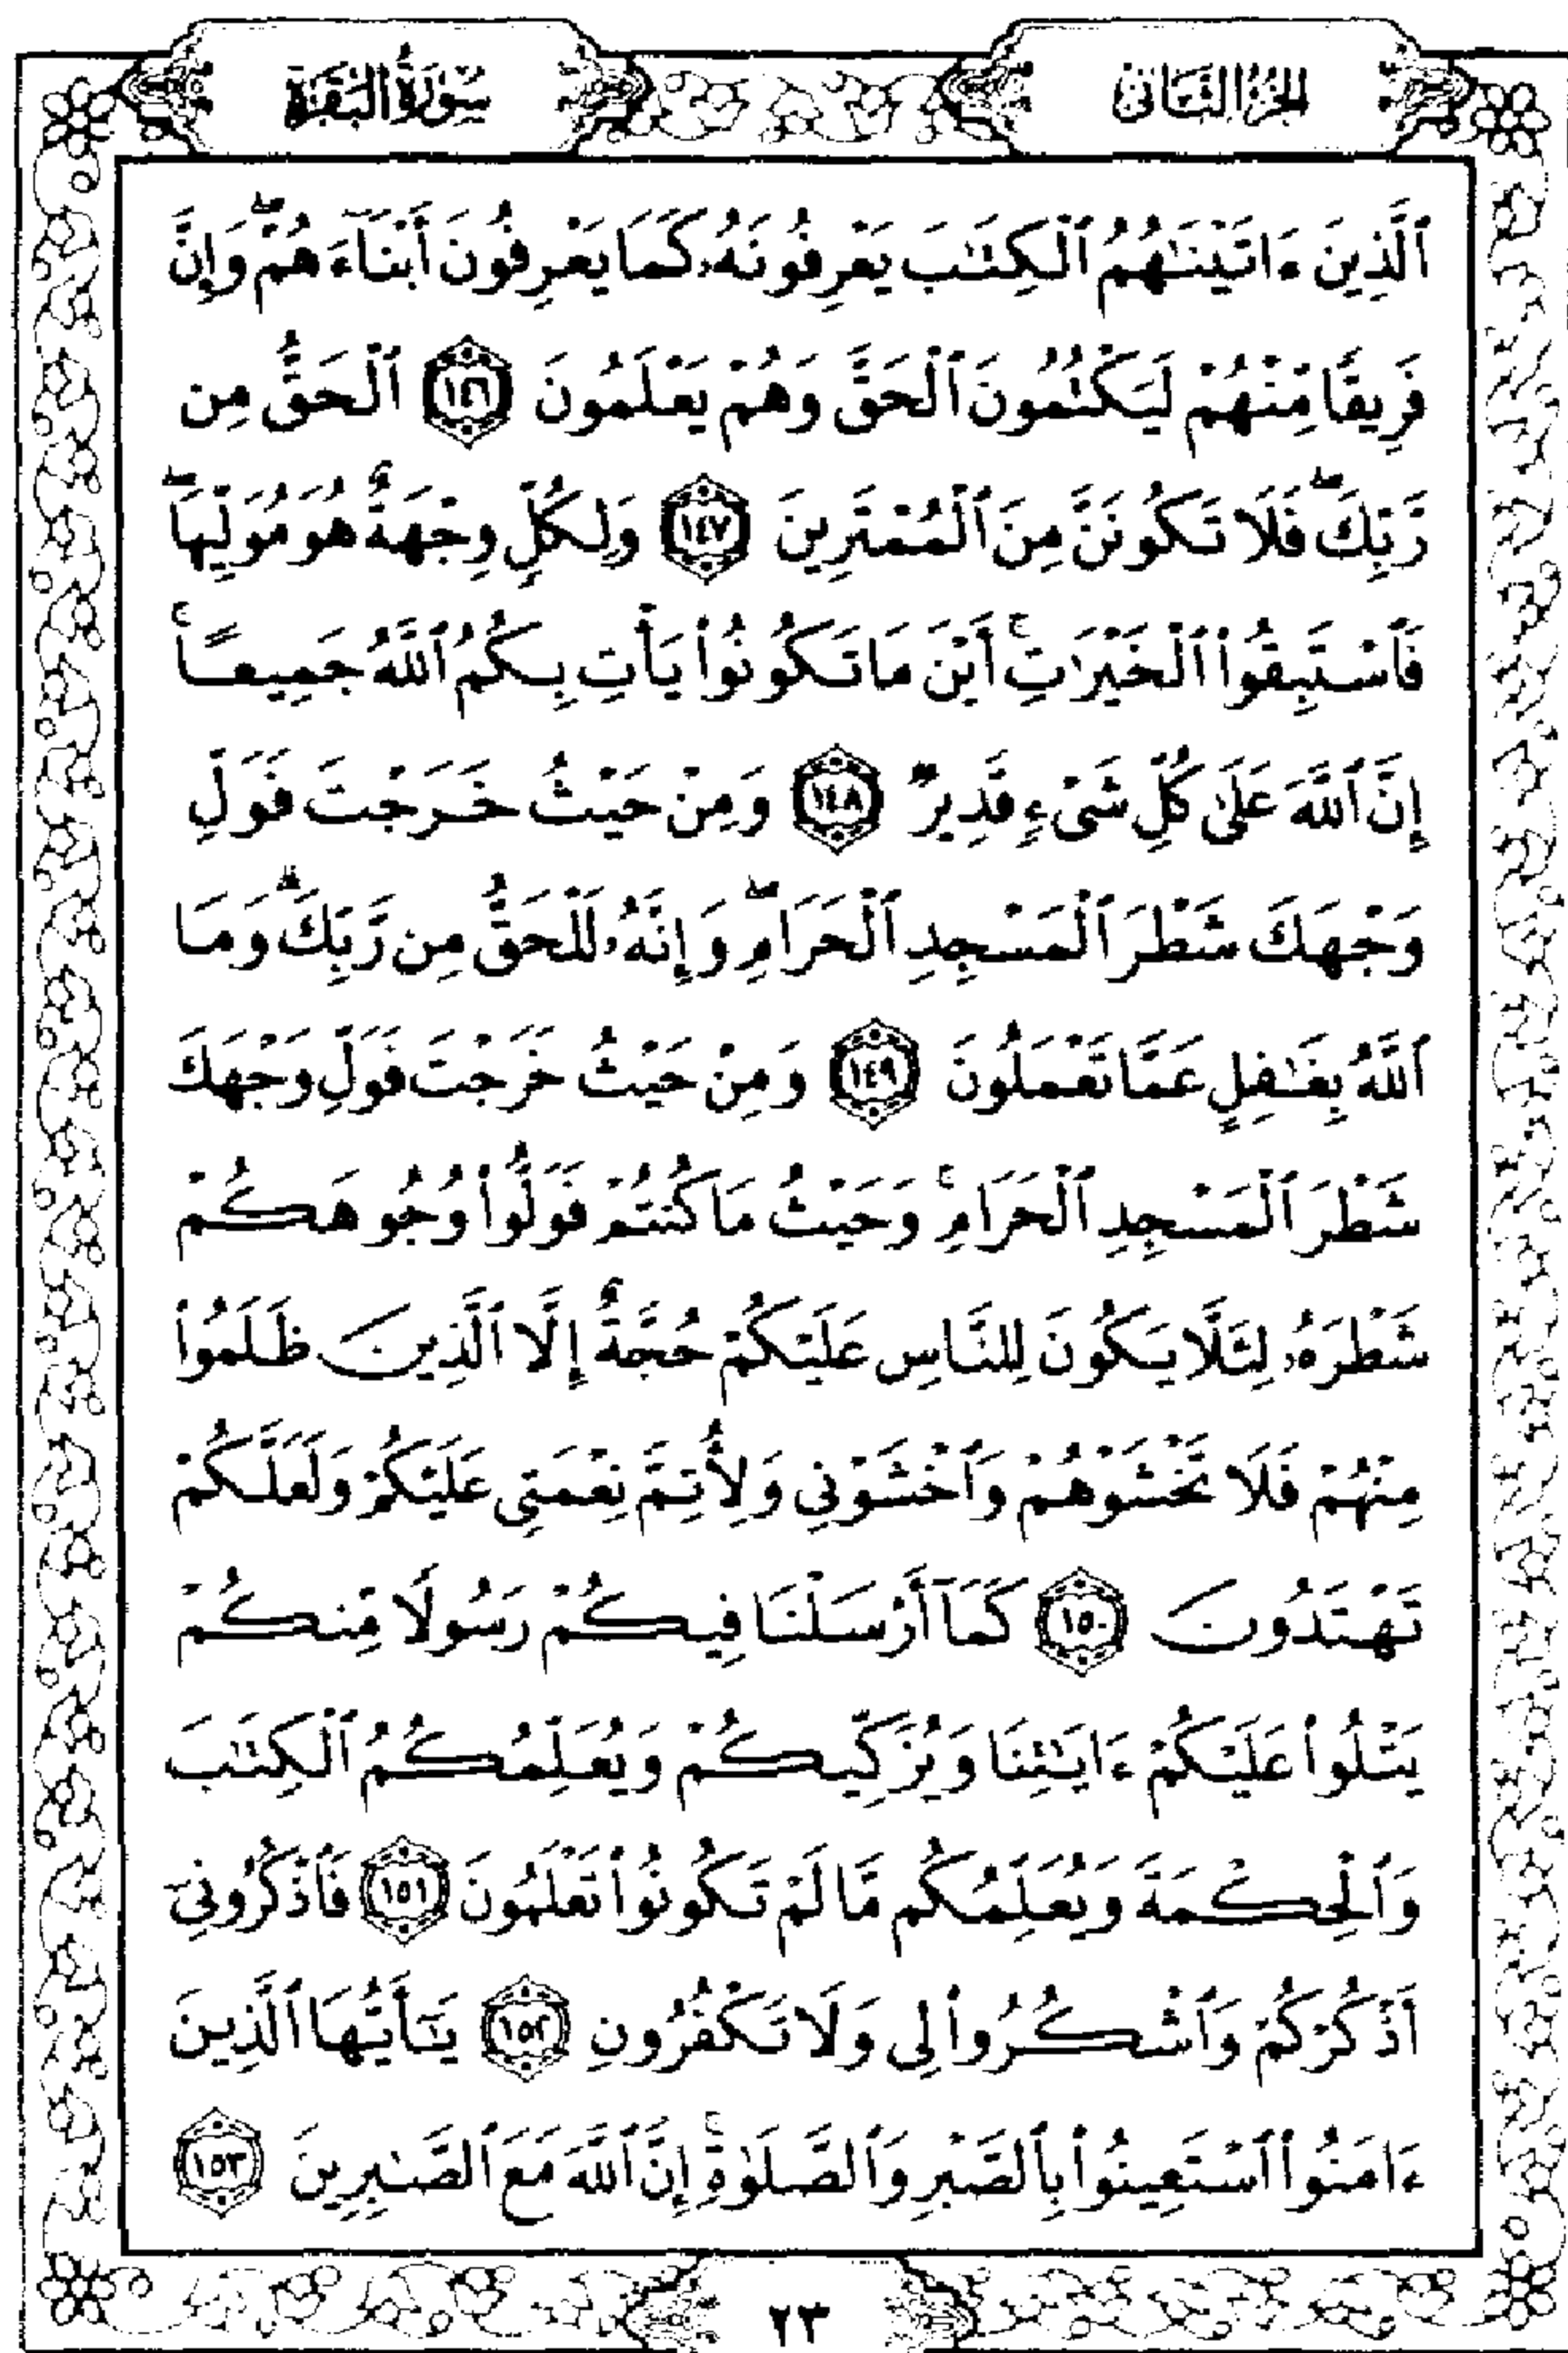 الجزء الثاني
سورة البقرة
ٱلَّذِينَ ءَاتَيْنَـٰهُمُ ٱلْكِتَـٰبَ يَعْرِفُونَهُۥ كَمَا يَعْرِفُونَ أَبْنَآءَهُمْ ۖ وَإِنَّ
فَرِيقًا مِّنْهُمْ لَيَكْتُمُونَ ٱلْحَقَّ وَهُمْ يَعْلَمُونَ ١٤٦ ٱلْحَقُّ مِن
رَّبِّكَ ۖ فَلَا تَكُونَنَّ مِنَ ٱلْمُمْتَرِينَ ١٤٧ وَلِكُلٍّ وِجْهَةٌ هُوَ مُوَلِّيهَا ۖ
فَٱسْتَبِقُوا۟ ٱلْخَيْرَٰتِ ۚ أَيْنَ مَا تَكُونُوا۟ يَأْتِ بِكُمُ ٱللَّهُ جَمِيعًا ۚ
إِنَّ ٱللَّهَ عَلَىٰ كُلِّ شَىْءٍ قَدِيرٌ ١٤٨ وَمِنْ حَيْثُ خَرَجْتَ فَوَلِّ
وَجْهَكَ شَطْرَ ٱلْمَسْجِدِ ٱلْحَرَامِ ۖ وَإِنَّهُۥ لَلْحَقُّ مِن رَّبِّكَ ۗ وَمَا
ٱللَّهُ بِغَـٰفِلٍ عَمَّا تَعْمَلُونَ ١٤٩ وَمِنْ حَيْثُ خَرَجْتَ فَوَلِّ وَجْهَكَ
شَطْرَ ٱلْمَسْجِدِ ٱلْحَرَامِ ۚ وَحَيْثُ مَا كُنتُمْ فَوَلُّوا۟ وُجُوهَكُمْ
شَطْرَهُۥ لِئَلَّا يَكُونَ لِلنَّاسِ عَلَيْكُمْ حُجَّةٌ إِلَّا ٱلَّذِينَ ظَلَمُوا۟
مِنْهُمْ فَلَا تَخْشَوْهُمْ وَٱخْشَوْنِى وَلِأُتِمَّ نِعْمَتِى عَلَيْكُمْ وَلَعَلَّكُمْ
تَهْتَدُونَ ١٥٠ كَمَآ أَرْسَلْنَا فِيكُمْ رَسُولًا مِّنكُمْ
يَتْلُوا۟ عَلَيْكُمْ ءَايَـٰتِنَا وَيُزَكِّيكُمْ وَيُعَلِّمُكُمُ ٱلْكِتَـٰبَ
وَٱلْحِكْمَةَ وَيُعَلِّمُكُم مَّا لَمْ تَكُونُوا۟ تَعْلَمُونَ ١٥١ فَٱذْكُرُونِىٓ
أَذْكُرْكُمْ وَٱشْكُرُوا۟ لِى وَلَا تَكْفُرُونِ ١٥٢ يَـٰٓأَيُّهَا ٱلَّذِينَ
ءَامَنُوا۟ ٱسْتَعِينُوا۟ بِٱلصَّبْرِ وَٱلصَّلَوٰةِ ۚ إِنَّ ٱللَّهَ مَعَ ٱلصَّـٰبِرِينَ ١٥٣
٢٣